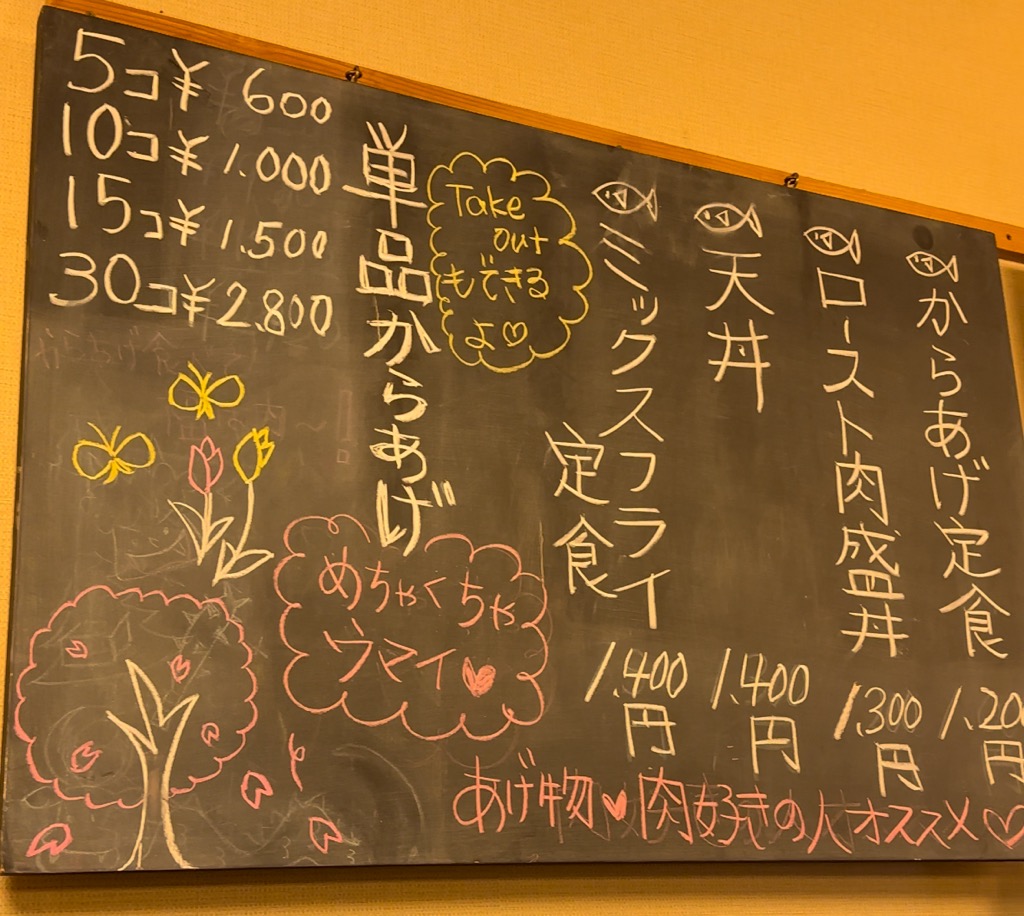 からあげ定食
1.20
円
ロースト肉盛丼
1.300
円
天丼
1.400
円
ミックスフライ
定食
1.400
円
Take
out
もできる
よ♡
単品からあげ
5コ¥600
10コ¥1.000
15コ¥1.500
30コ¥2.800
めちゃくちゃ
ウマイ♥
あげ物♥肉好きの人オススメ♡